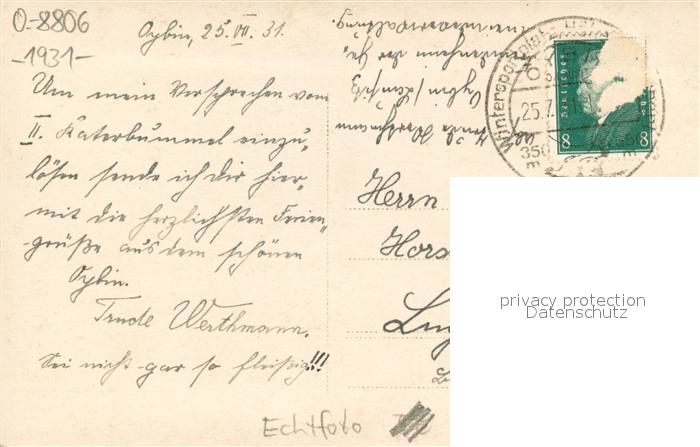 O-8806
-1931-
Oybin, 25. VII. 31.
Um mein Versprechen vom
II. Katerbummel einzu„
lösen sende ich dir hier„
mit die herzlichsten Ferien„
grüße aus dem schönen
Oybin.
Trude Werthmann.
Sei nicht gar so fleißig!!!
Trude Werthmann
Oybin
der Ge„
Herrn
Hors
Lu
Wintersportplatz
25.7.
350
Deutsches
8 8
privacy protection
Datenschutz
Echtfoto